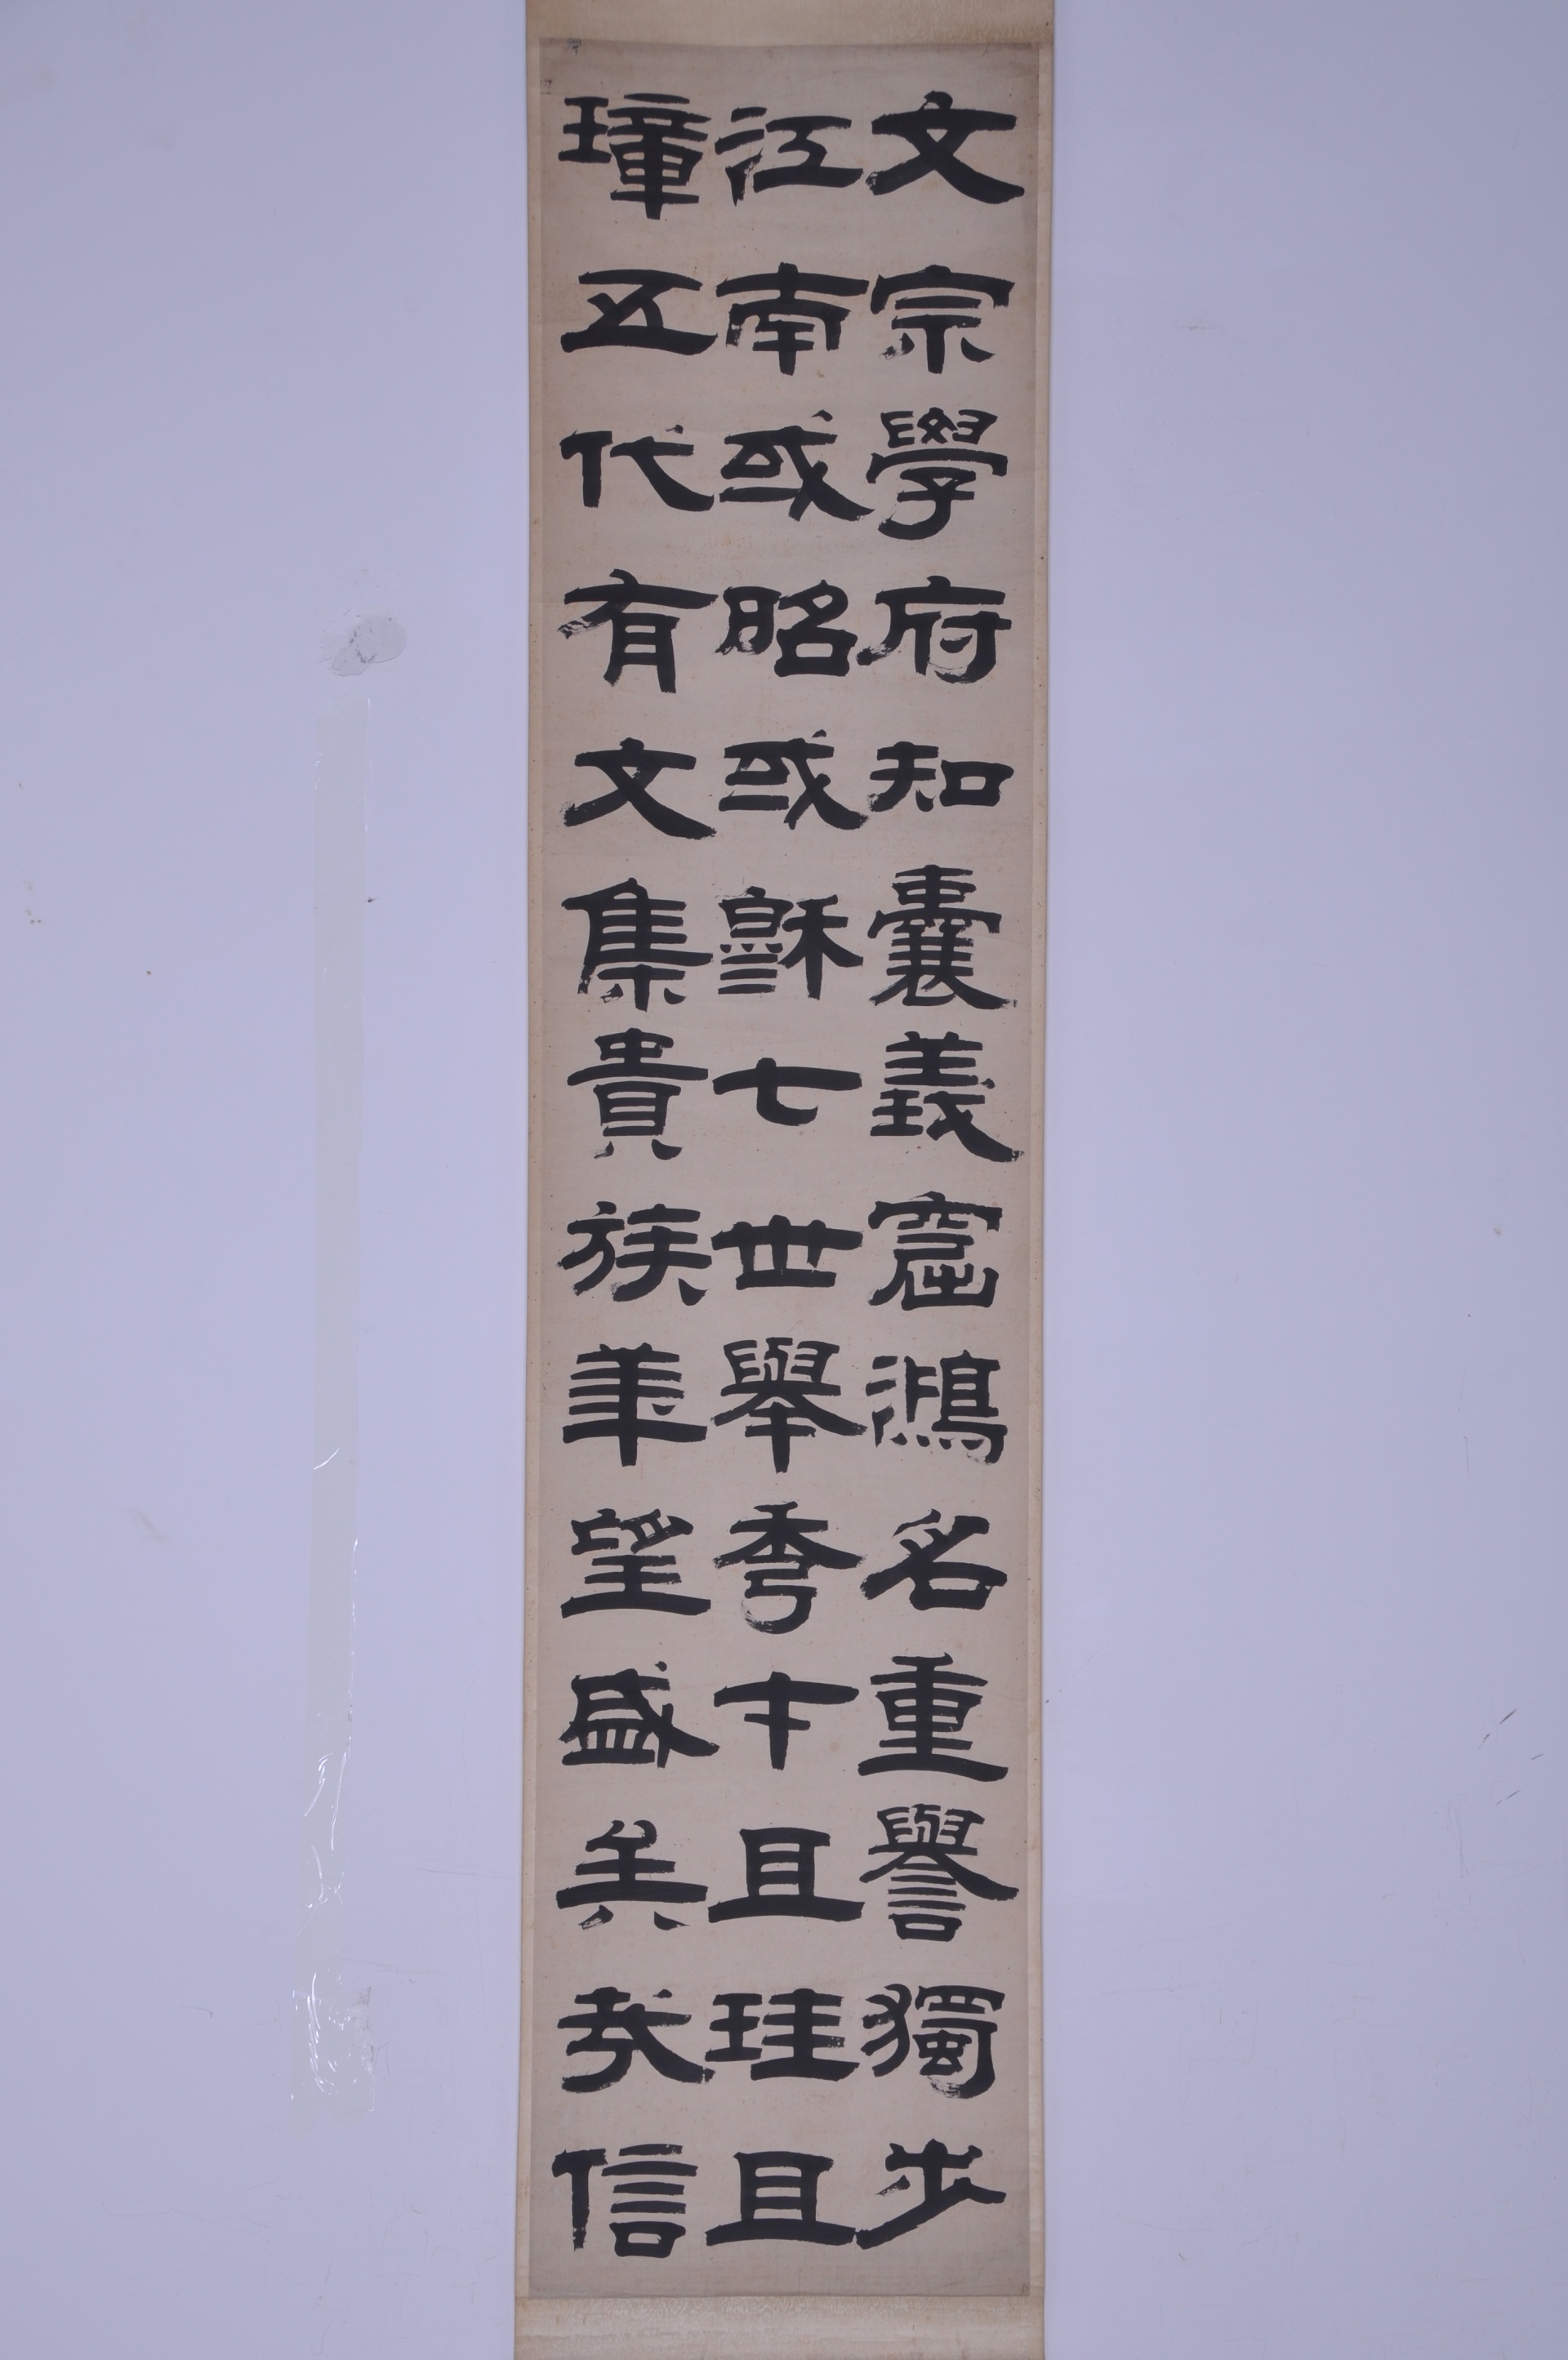 文宗學府知囊義窟鴻名重譽獨步
江南或昭或穆七世舉秀才且珪且
璋五代有文集貴族華望盛矣哉信